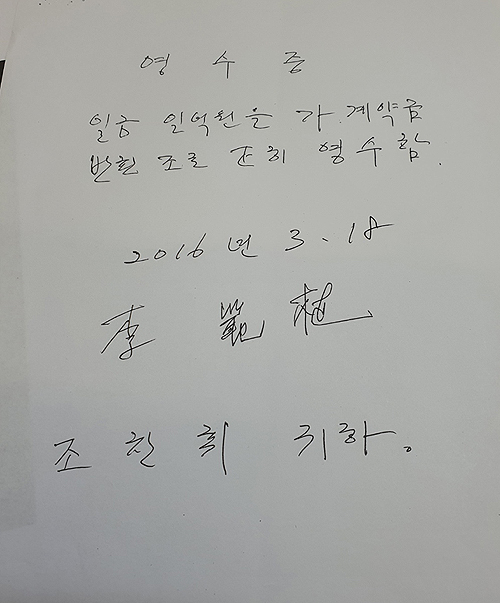 영 수 증
일금 일억원을 가.계약금
반환 조로 正히 영수함.
2016년 3. 18
李 範
조 찬 희 귀하.